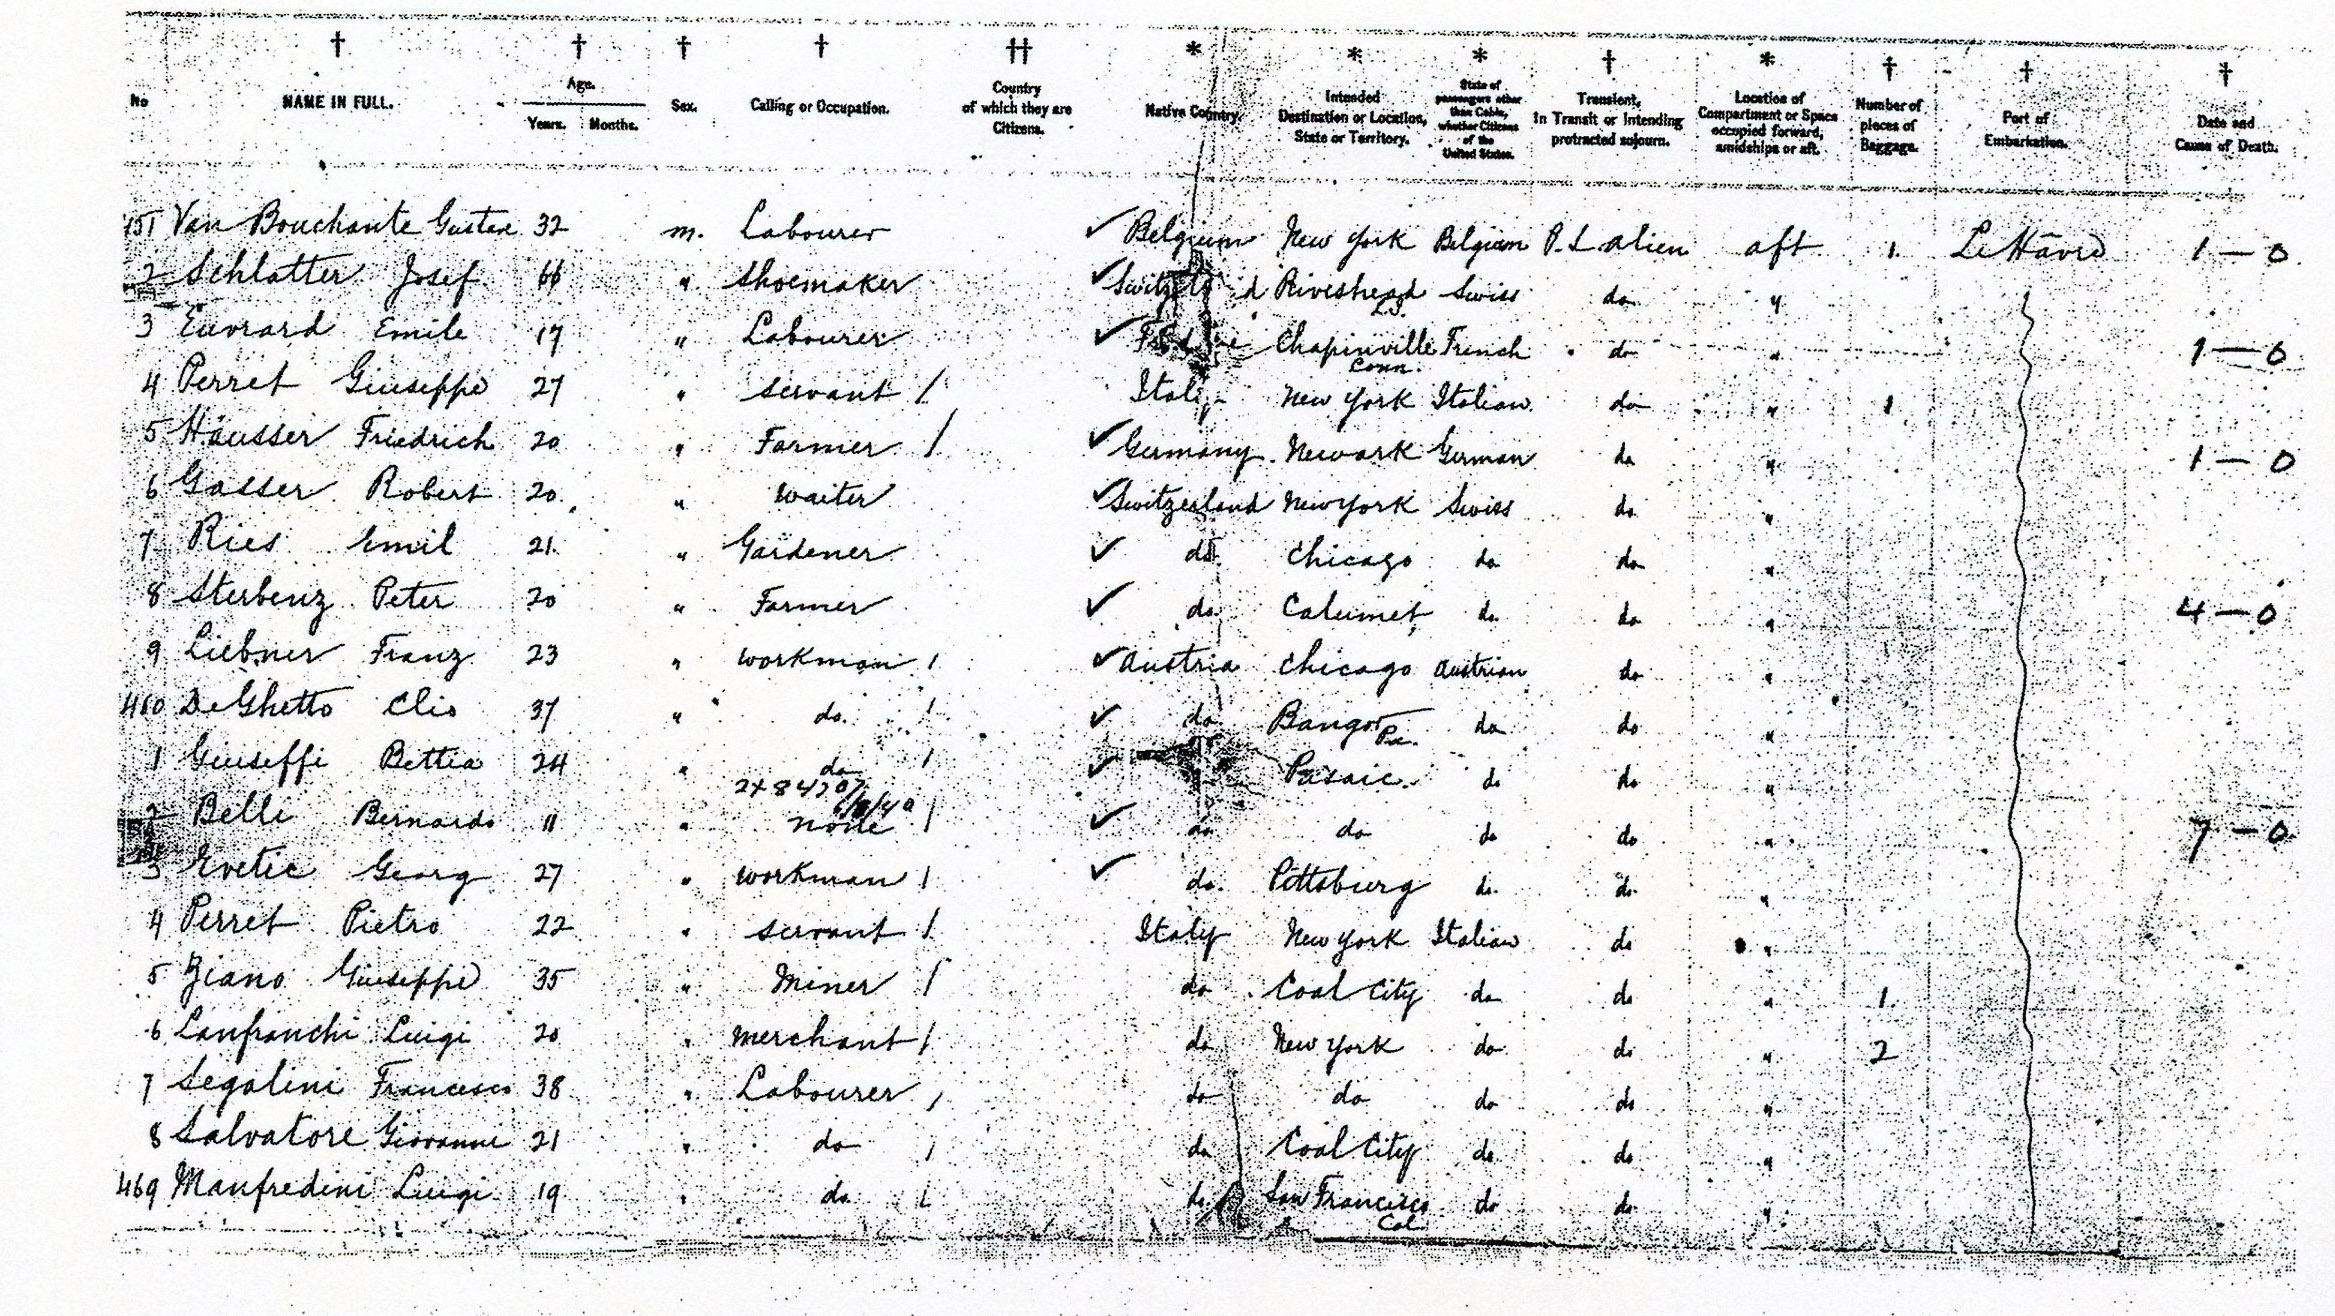 † † † † †† * * * † * † † †
No NAME IN FULL. Age. Years. Months. Sex. Calling or Occupation. Country of which they are Citizens. Native Country. Intended Destination or Location, State or Territory. State of passengers other than Cabin, whether Citizens of the United States. Transient, In Transit or Intending protracted sojourn. Location of Compartment or Space occupied forward, amidships or aft. Number of pieces of Baggage. Port of Embarkation. Date and Cause of Death.
451 Van Bouchaute Gustave 32 m. Labourer ✓ Belgium New York Belgian P.S. alien aft 1. Le Hâvre 1 — 0
2 Schlatter Josef 66 " Shoemaker ✓ Riveshead L.I. Swiss do "
3 Euvrard Emile 17 " Labourer ✓ Chapinville Conn. French do " 1 — 0
4 Perret Giuseppe 27 " servant / New York Italian do " 1
5 Häusser Friedrich 20 " Farmer / ✓ Germany Newark German do " 1 — 0
6 Gasser Robert 20 " waiter ✓ Switzerland New York Swiss do "
7 Ries Emil 21 " Gardener ✓ do Chicago do do "
8 Sterbenz Peter 20 " Farmer ✓ do Calumet do do " 4 — 0
9 Liebner Franz 23 " workman / ✓ Austria Chicago Austrian do "
460 De Ghetto Clio 37 " do. / ✓ do Bangor Pa. do do "
1 Giuseffi Bettia 24 " do / ✓ Pasaic. do do "
2X84707
6/8/40
2 Belli Bernardo 11 " none / ✓ do do do do " 7 — 0
3 Evetic Georg 27 " workman / ✓ do. Pittsburg do. do "
4 Perret Pietro 22 " servant / Italy New York Italian do "
5 Ziano Giuseppe 35 " Miner / do Coal City do do " 1
6 Lanfranchi Luigi 20 " merchant / do New York do do " 2
7 Segalini Francesco 38 " Labourer / do do do do "
8 Salvatore Giovanni 21 " do / do Coal City do do "
469 Manfredini Luigi 19 " do / do San Francisco Cal do do "